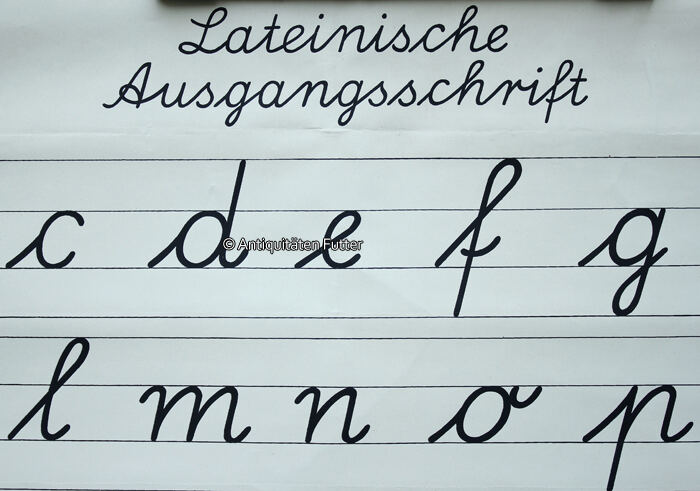 Lateinische
Ausgangsschrift
c d e f g
© Antiquitäten Futter
l m n o p